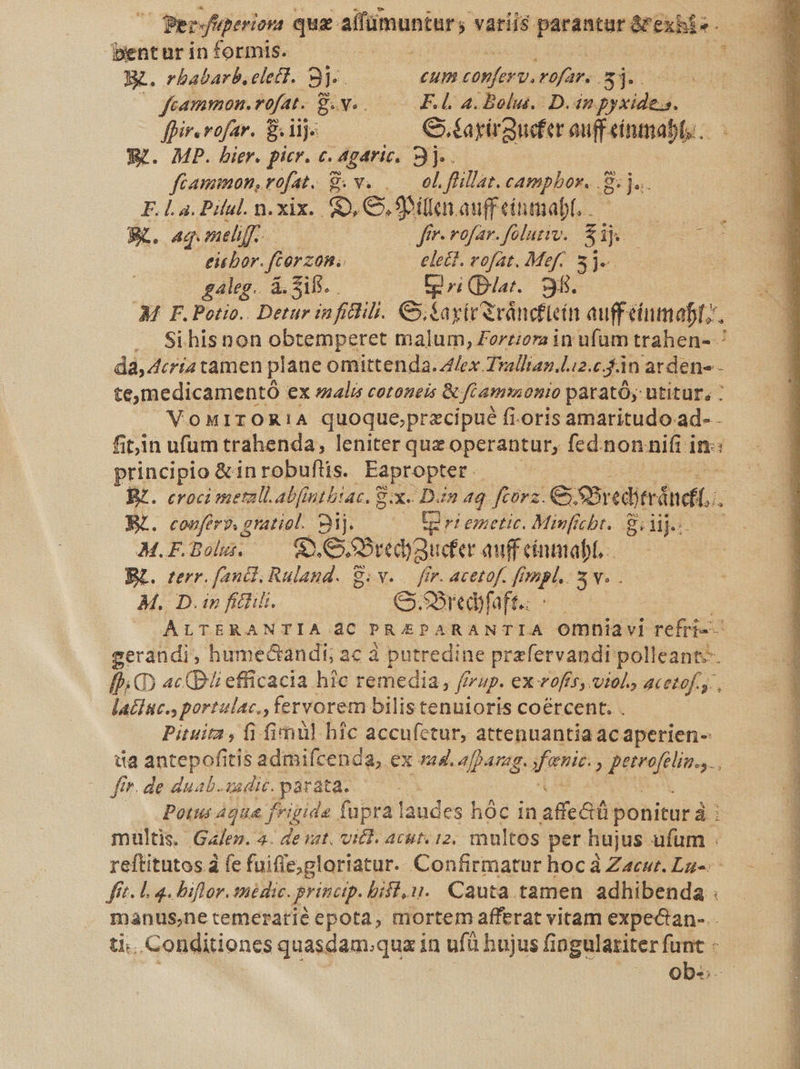 Per superiora quæ aſſumuntur, variis parantur & exhi-
bentur in formis.
℞. rhabarb. elect. ℈j. cum conſerv. roſar. ʒj.
ſcammon. roſat. g. v. F. l. a. Bolus. D. in pyxide.
ſpir. roſar. g. iij. S. Laxir Zucker auff einmahl.
℞. MP. hier. picr. c. agaric. ℈j.
ſcammon. roſat. g. v. ol. ſtillat. camphor. g. j.
F. l. a. Pilul. n. xix. D. S. Pillen auff einmahl.
℞. aq. meliſſ. ſir. roſar. ſolutiv. ℥ij.
euhor. ſcorzon. elect. roſat. Meſ. ʒj.
galeg. ā. ℥iß.
M F. Potio. Detur in fictili. S. Laxir Träncklein auff einmahl.
Si his non obtemperet malum, Fortiora in uſum trahen-
da, Acria tamen plane omittenda. Alex Trallian. l. 12. c. 3. in arden-
te, medicamentô ex malis cotoneis & ſcammonio paratô, utitur.
VOMITORIA quoque, præcipuè ſi oris amaritudo ad-
ſit, in uſum trahenda, leniter quæ operantur, ſed non niſi in
principio & in robuſtis. Eapropter
℞. croci metall. abſinthiac. g. x. D. in aq ſcorz. S. Brechtränckl.
℞. conſerv. gratiol. ℈ij. 🜿ri emetic. Minſicht. g. iij.
M. F. Bolus. D. S. Brech Zucker auff einmahl.
℞. terr. ſanct. Ruland. g. v. ſir. acetoſ. ſimpl. ʒ v.
M. D. in fictili. S. Brechſafft.
ALTERANTIA ac PRÆPARANTIA omnia vi refri-
gerandi, humectandi, ac à putredine præſervandi polleant.
efficacia hîc remedia, ſirup. ex roſis, viol., acetoſ.,
lactuc., portulac., fervorem bilis tenuioris coërcent.
Pituita, ſi ſimul hîc accuſetur, attenuantia ac aperien-
tia antepoſitis admiſcenda, ex rad. aſparag., fœnic., petroſelin.,
ſir. de duab. radic. parata.
Potus aquæ frigidæ ſupra laudes hôc in affectû ponitur à
multis. Galen. 4. de rat. vict. acut. 12. multos per hujus uſum
reſtitutos à ſe fuiſſe, gloriatur. Confirmatur hoc à Zacut. Lu-
ſit. l. 4. hiſtor. medic. princip. hiſt. 11. Cauta tamen adhibenda
manus, ne temerariè epota, mortem afferat vitam expectan-
ti. Conditiones quasdam, quæ in uſû hujus ſingulariter ſunt
ob-